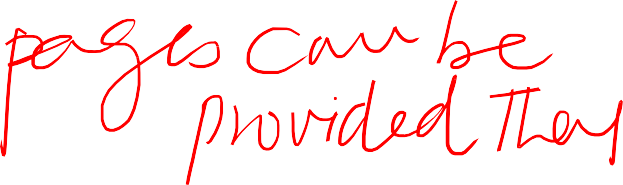 pages can be
provided They